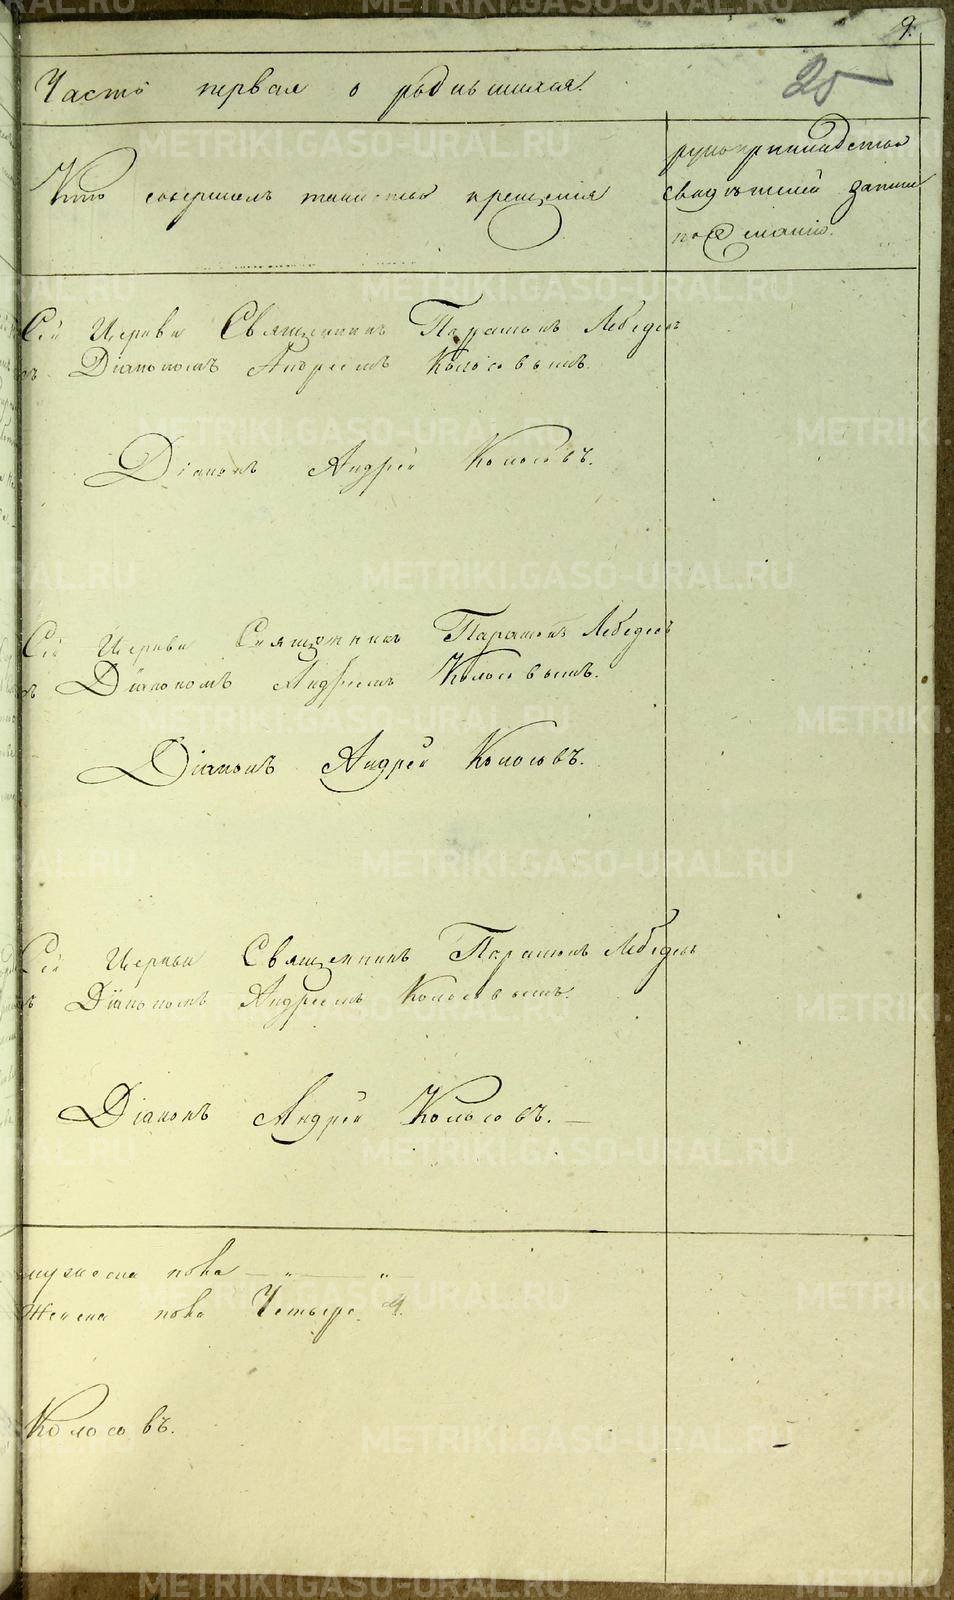 9.
25
Часть первая о родившихся.
Кто совершалъ таинство крещенія
рукоприкладство
свидѣтелей записи
по желанію.
Сей Церкви Священникъ Парамонъ Лебедевъ
съ Діакономъ Андреемъ Колосовымъ.
Діаконъ Андрей Колосовъ.
Сей Церкви Священникъ Парамонъ Лебедевъ
съ Діакономъ Андреемъ Колосовымъ.
Діаконъ Андрей Колосовъ.
Сей Церкви Священникъ Парамонъ Лебедевъ
съ Діакономъ Андреемъ Колосовымъ.
Діаконъ Андрей Колосовъ.
мужеска пола — „ — „
Женска пола Четыре. 4.
Колосовъ.
METRIKI.GASO-URAL.RU